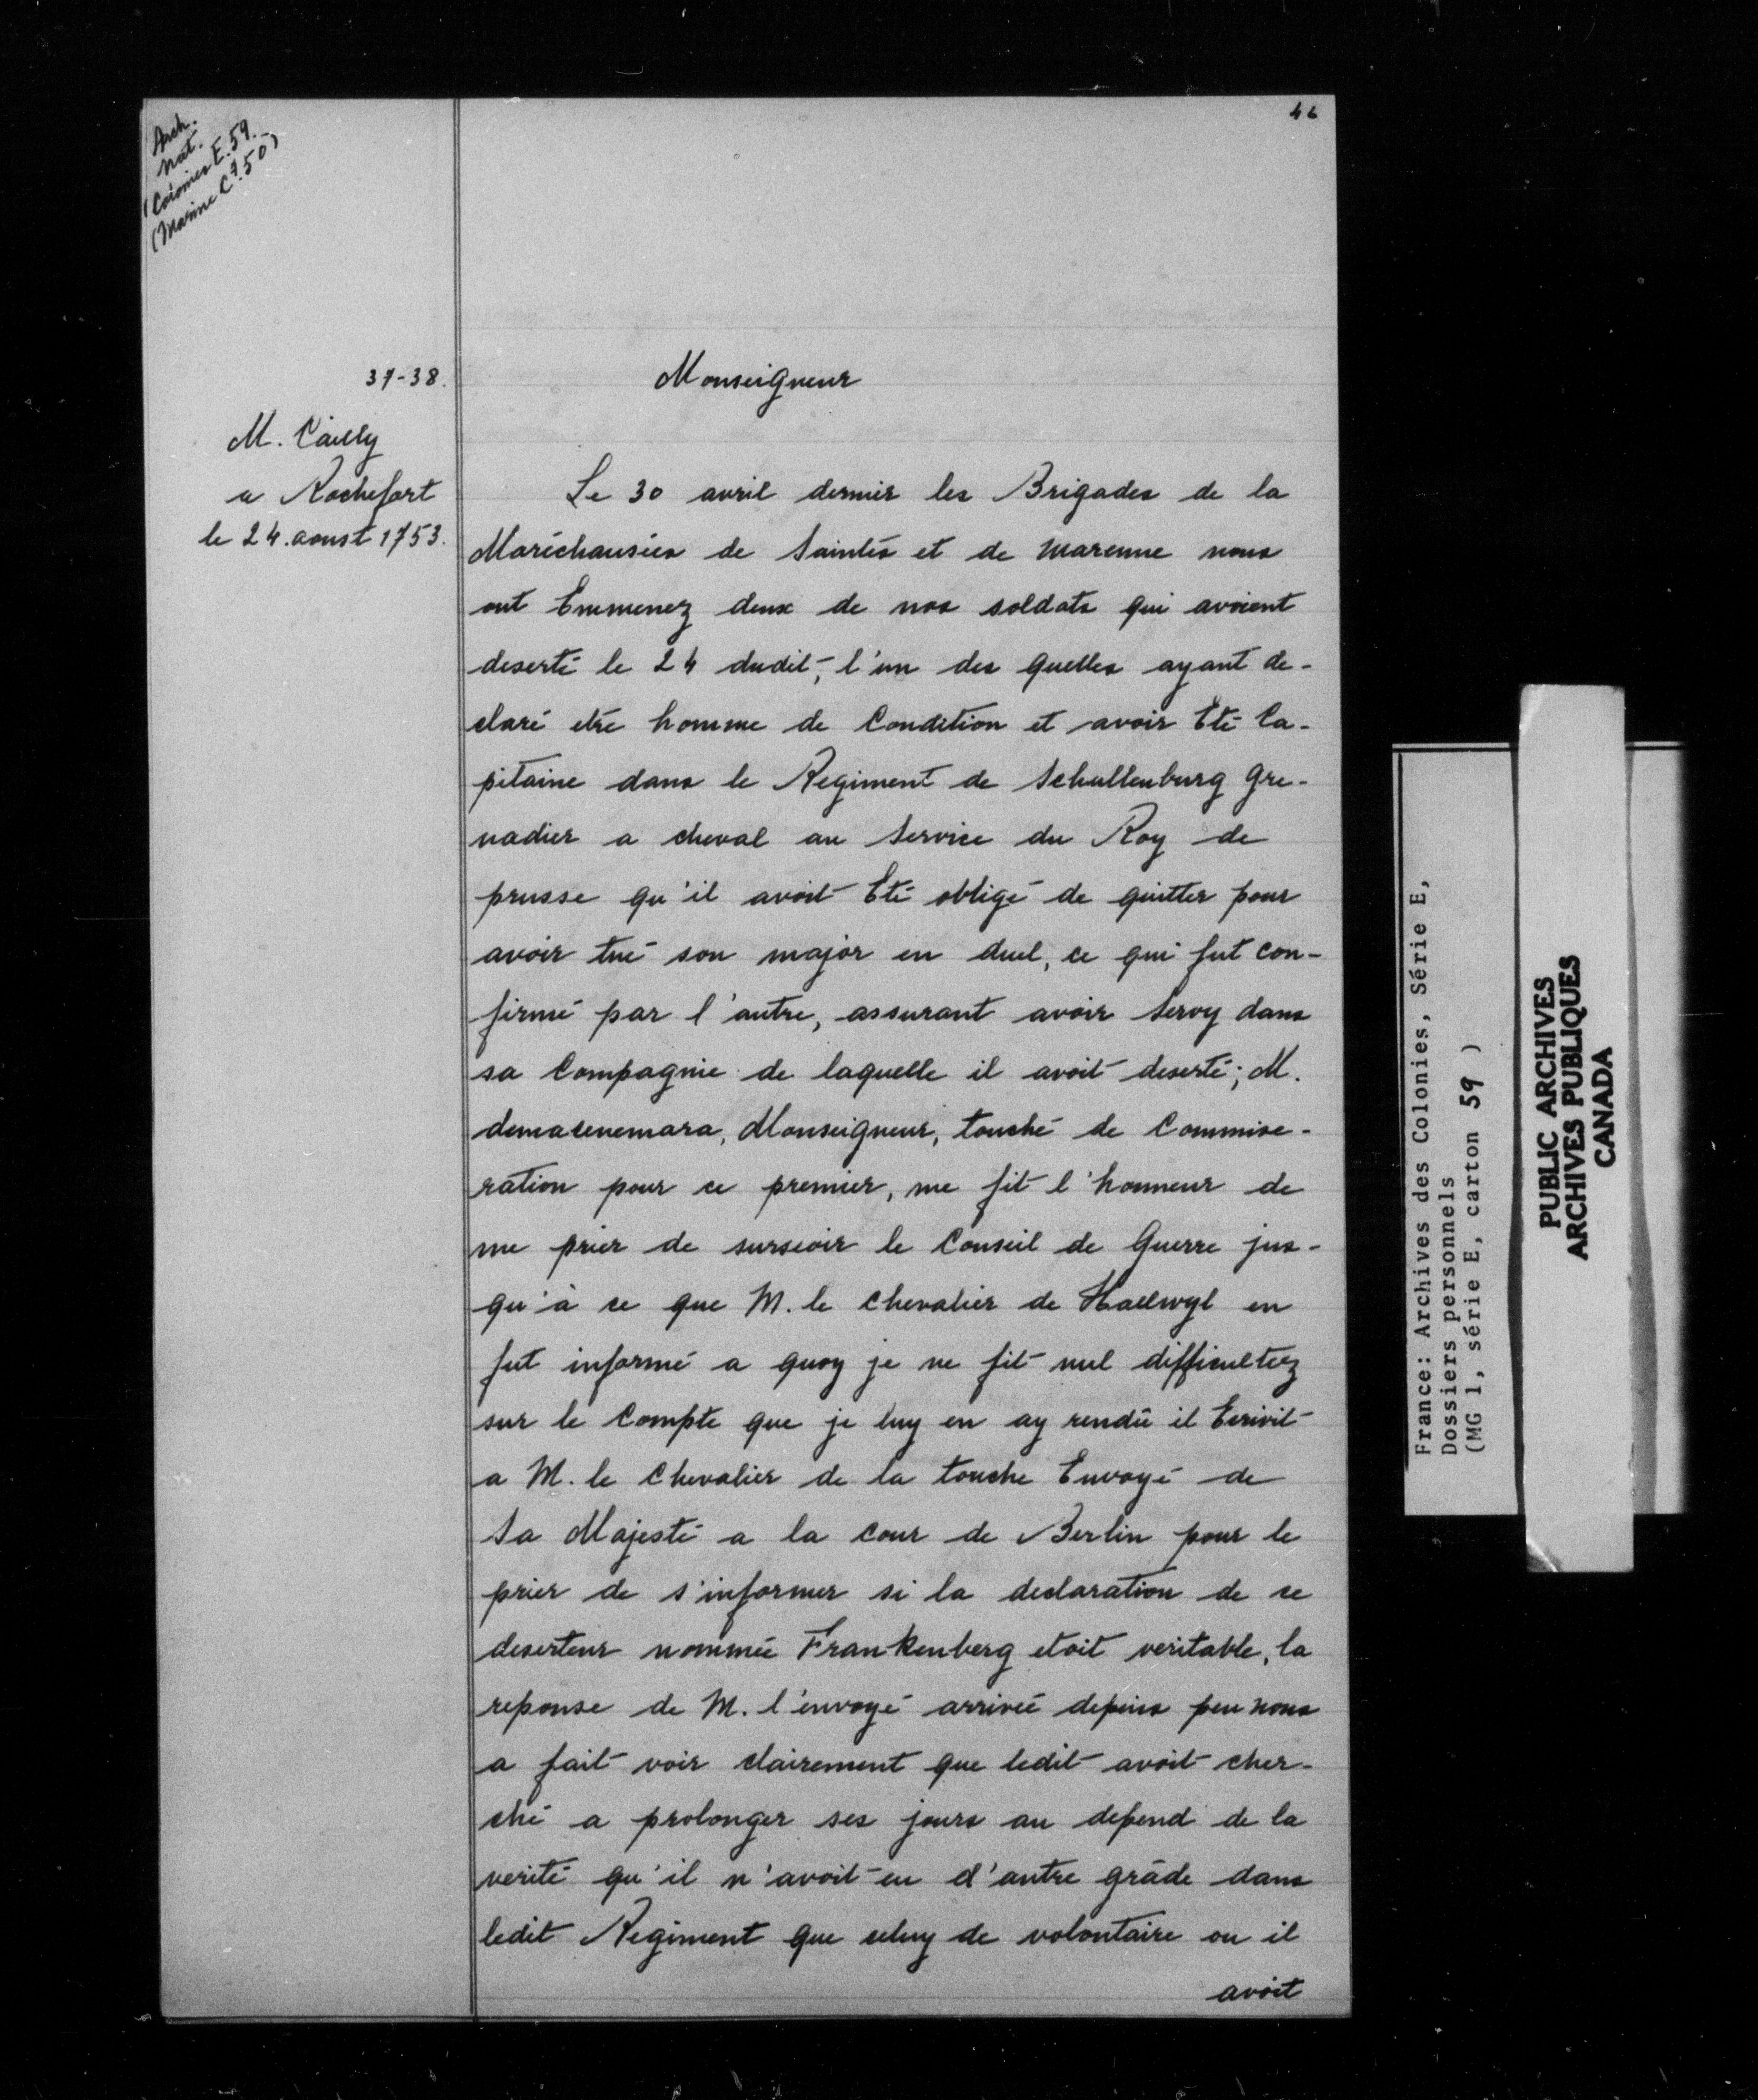 Arch.
nat.
(Colonies E. 59.
(Marine C7. 50)
46
37-38.
M. Cailly
a Rochefort
le 24. aoust 1753.
Monseigneur
Le 30 avril dernier les Brigades de la
Maréchausiés de Saintés et de Marenne nous
ont Emmenez deux de nos soldats qui avoient
deserté le 24 dudit, l'un des quelles ayant de-
claré etré homme de Condition et avoir Eté Ca-
pitaine dans le Regiment de Schullenburg Gre-
nadier a cheval au Service du Roy de
prusse qu'il avoit Eté obligé de quitter pour
avoir tué son major en duel, ce qui fut con-
firmé par l'autre, assurant avoir Servy dans
sa Compagnie de laquelle il avoit deserté; M.
demasenemara, Monseigneur, touché de Commise-
ration pour ce premier, me fit l'honneur de
me prier de surseoir le Conseil de Guerre jus-
qu'à ce que M. le Chevalier de Hallwyl en
fut informé a quoy je ne fit nul difficultéz
sur le Compte que je luy en ay rendû il Ecrivit
a M. le Chevalier de la touche Envoyé de
Sa Majesté a la Cour de Berlin pour le
prier de s'informer si la declaration de ce
deserteur nommée Frankenberg etoit veritable, la
reponse de M. l'envoyé arrivée depuis peu nous
a fait voir clairement que ledit avoit cher-
ché a prolonger ses jours au depend de la
verité qu'il n'avoit eu d'autre grâde dans
ledit Regiment que celuy de volontaire ou il
avoit
France: Archives des Colonies, Série E,
Dossiers personnels
(MG 1, série E, carton 59 )
PUBLIC ARCHIVES
ARCHIVES PUBLIQUES
CANADA